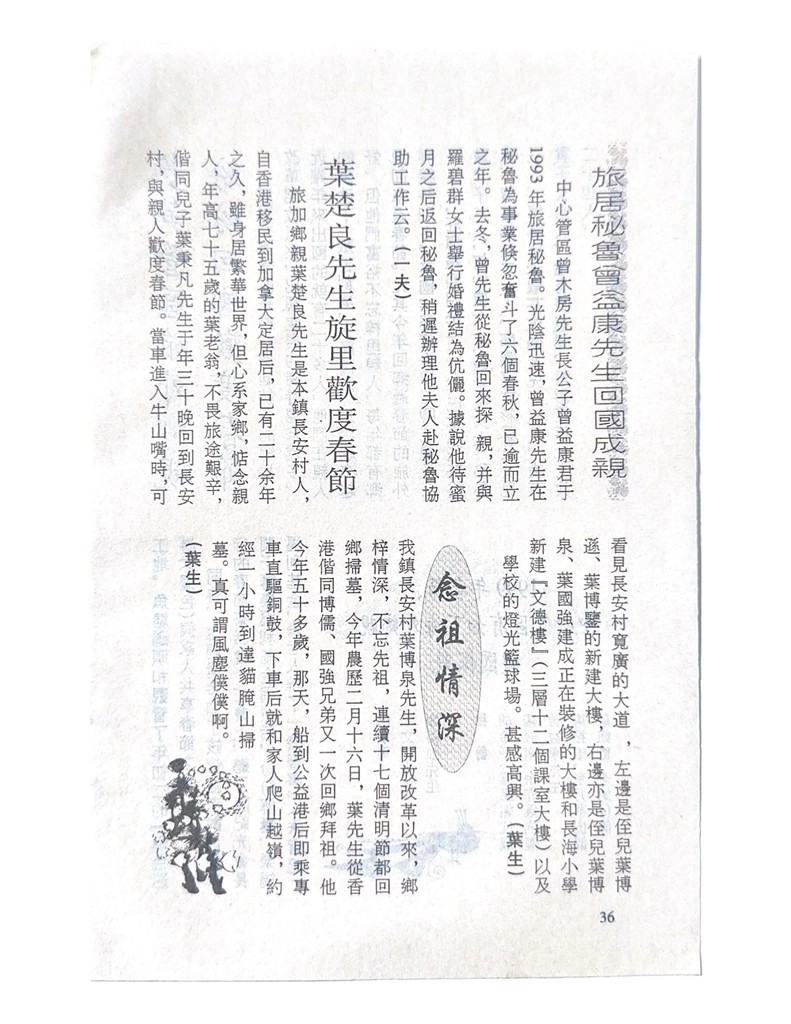 旅居秘魯曾益康先生回國成親
中心管區曾木房先生長公子曾益康君于
1993年旅居秘魯。光陰迅速，曾益康先生在
秘魯為事業倏忽奮斗了六個春秋，已逾而立
之年。去冬，曾先生從秘魯回來探 親，并與
羅碧群女士舉行婚禮結為伉儷。據說他待蜜
月之后返回秘魯，稍遲辦理他夫人赴秘魯協
助工作云。（一夫）
葉楚良先生旋里歡度春節
旅加鄉親葉楚良先生是本鎮長安村人，
自香港移民到加拿大定居后，已有二十余年
之久，雖身居繁華世界，但心系家鄉，惦念親
人，年高七十五歲的葉老翁，不畏旅途艱辛，
偕同兒子葉秉凡先生于年三十晚回到長安
村，與親人歡度春節。當車進入牛山嘴時，可
看見長安村寬廣的大道 ，左邊是侄兒葉博
遜、葉博鑒的新建大樓，右邊亦是侄兒葉博
泉、葉國強建成正在裝修的大樓和長海小學
新建『文德樓』（三層十二個課室大樓）以及
學校的燈光籃球場。甚感高興。（葉生）
念祖情深
我鎮長安村葉博泉先生，開放改革以來，鄉
梓情深，不忘先祖，連續十七個清明節都回
鄉掃墓，今年農歷二月十六日，葉先生從香
港偕同博儒、國強兄弟又一次回鄉拜祖。他
今年五十多歲，那天，船到公益港后即乘專
車直驅銅鼓，下車后就和家人爬山越嶺，約
經一小時到達貓腌山掃
墓。真可謂風塵僕僕啊。
（葉生）
36